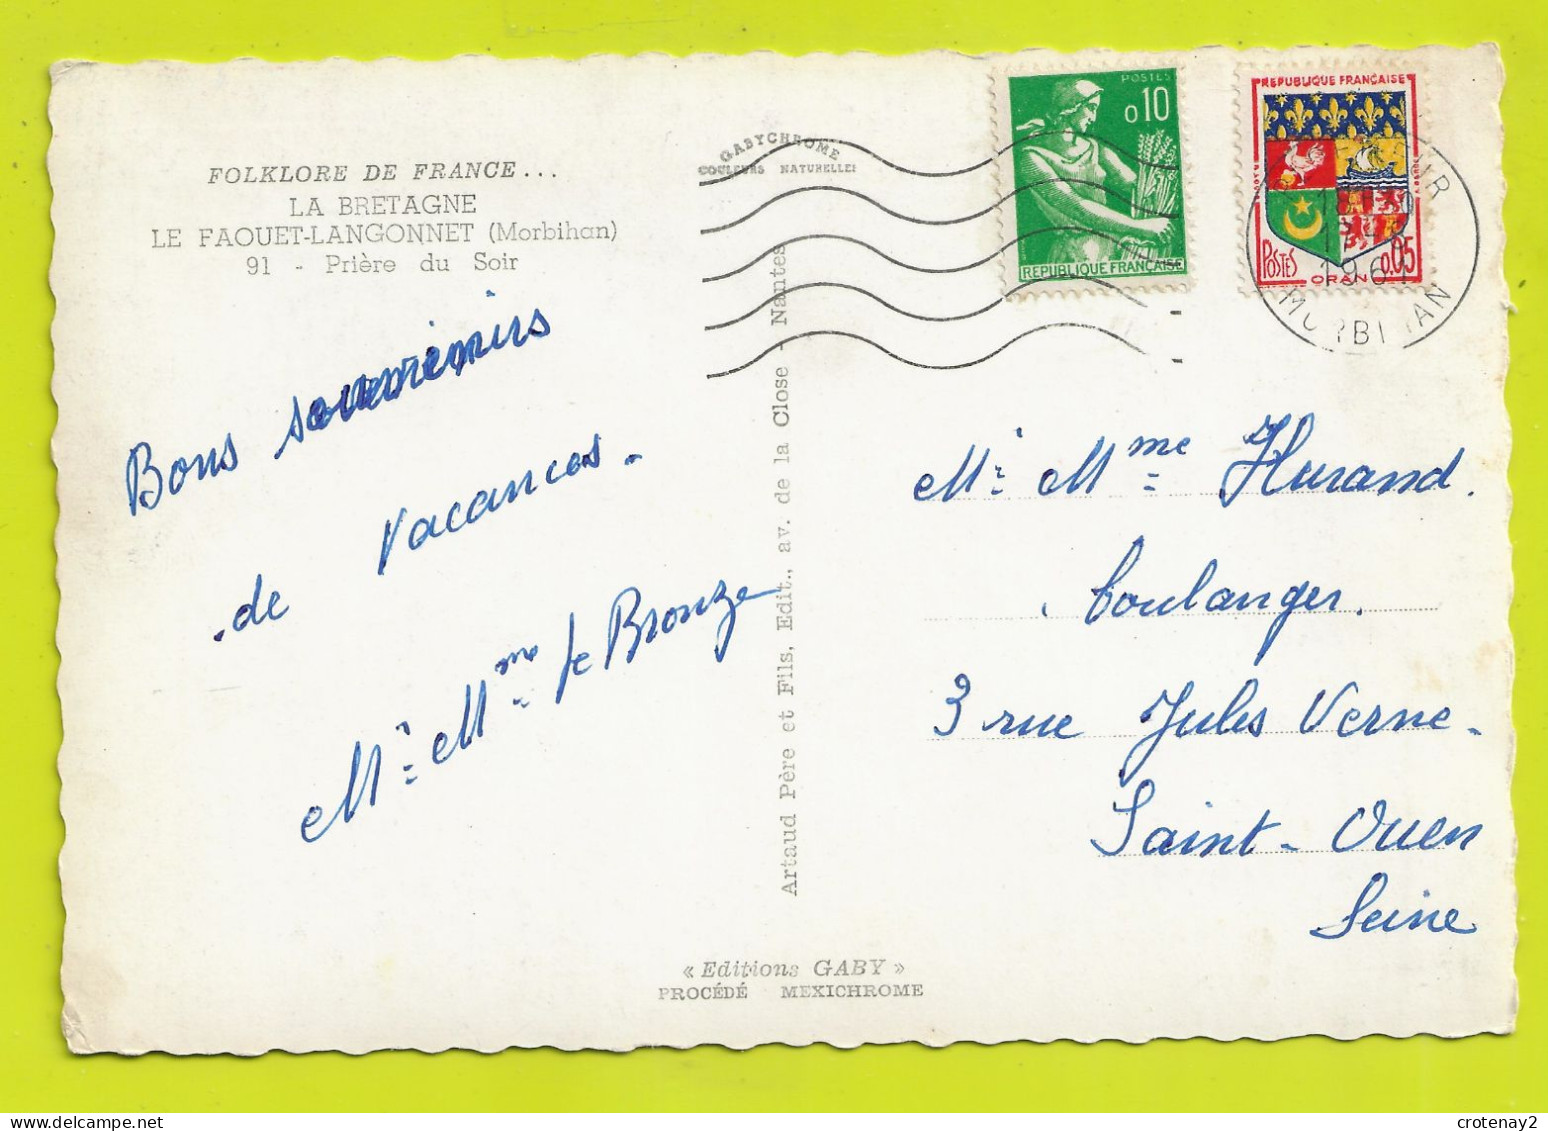 FOLKLORE DE FRANCE...
LA BRETAGNE
LE FAOUET-LANGONNET (Morbihan)
91 - Prière du Soir
GABYCHROME
COULEURS NATURELLES
POSTES
0,10
REPUBLIQUE FRANÇAISE
REPUBLIQUE FRANÇAISE
POSTES
ORAN
0,05
18H30
1961
MORBIHAN
Bons souvenirs
de vacances.
Mr Mme Le Bronze
Artaud Père et Fils, Edit., av. de la Close - Nantes
Mr Mme Hurand.
boulanger.
3 rue Jules Verne -
Saint-Ouen
Seine
« Editions GABY »
PROCÉDÉ MEXICHROME
crotenay2